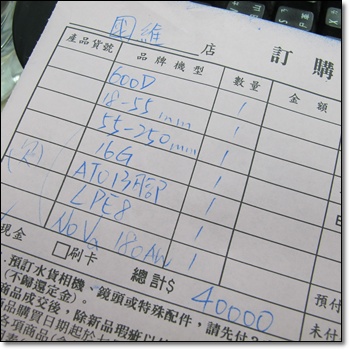 國維 店 訂購
產品貨號 品牌機型 數量 金額
600D 1
18-55mm 1
55-250mm 1
16G 1
1
LPE8 1
NoVa 180AW 1
現金 □刷卡 總計$ 40000 預付
未付
.預訂水貨相機、鏡頭或特殊配件,請先付
(不歸還定金)。
商品成交後,除新品瑕疵以